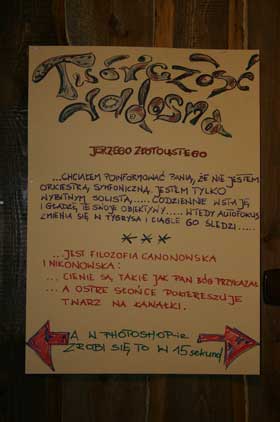 Twórczość
radosna
JERZEGO ZŁOTOUSTEGO
...CHCIAŁEM POINFORMOWAĆ PANIĄ, ŻE NIE JESTEM
ORKIESTRĄ SYMFONICZNĄ. JESTEM TYLKO
WYBITNYM SOLISTĄ..... CODZIENNIE WSTAJĘ
I GŁADZĘ TE SWOJE OBIEKTYWY..... WTEDY AUTOFOKUS
ZMIENIA SIĘ W TYGRYSA I CIĄGLE GO ŚLEDZI.....
* * *
...JEST FILOZOFIA CANONOWSKA
I NIKONOWSKA:
... CIENIE SĄ, TAKIE JAK PAN BÓG PRZYKAZAŁ
... A OSTRE SŁOŃCE POKIERESZUJE
TWARZ NA KAWAŁKI.
A W PHOTOSHOPIE
ZROBI SIĘ TO W 15 sekund